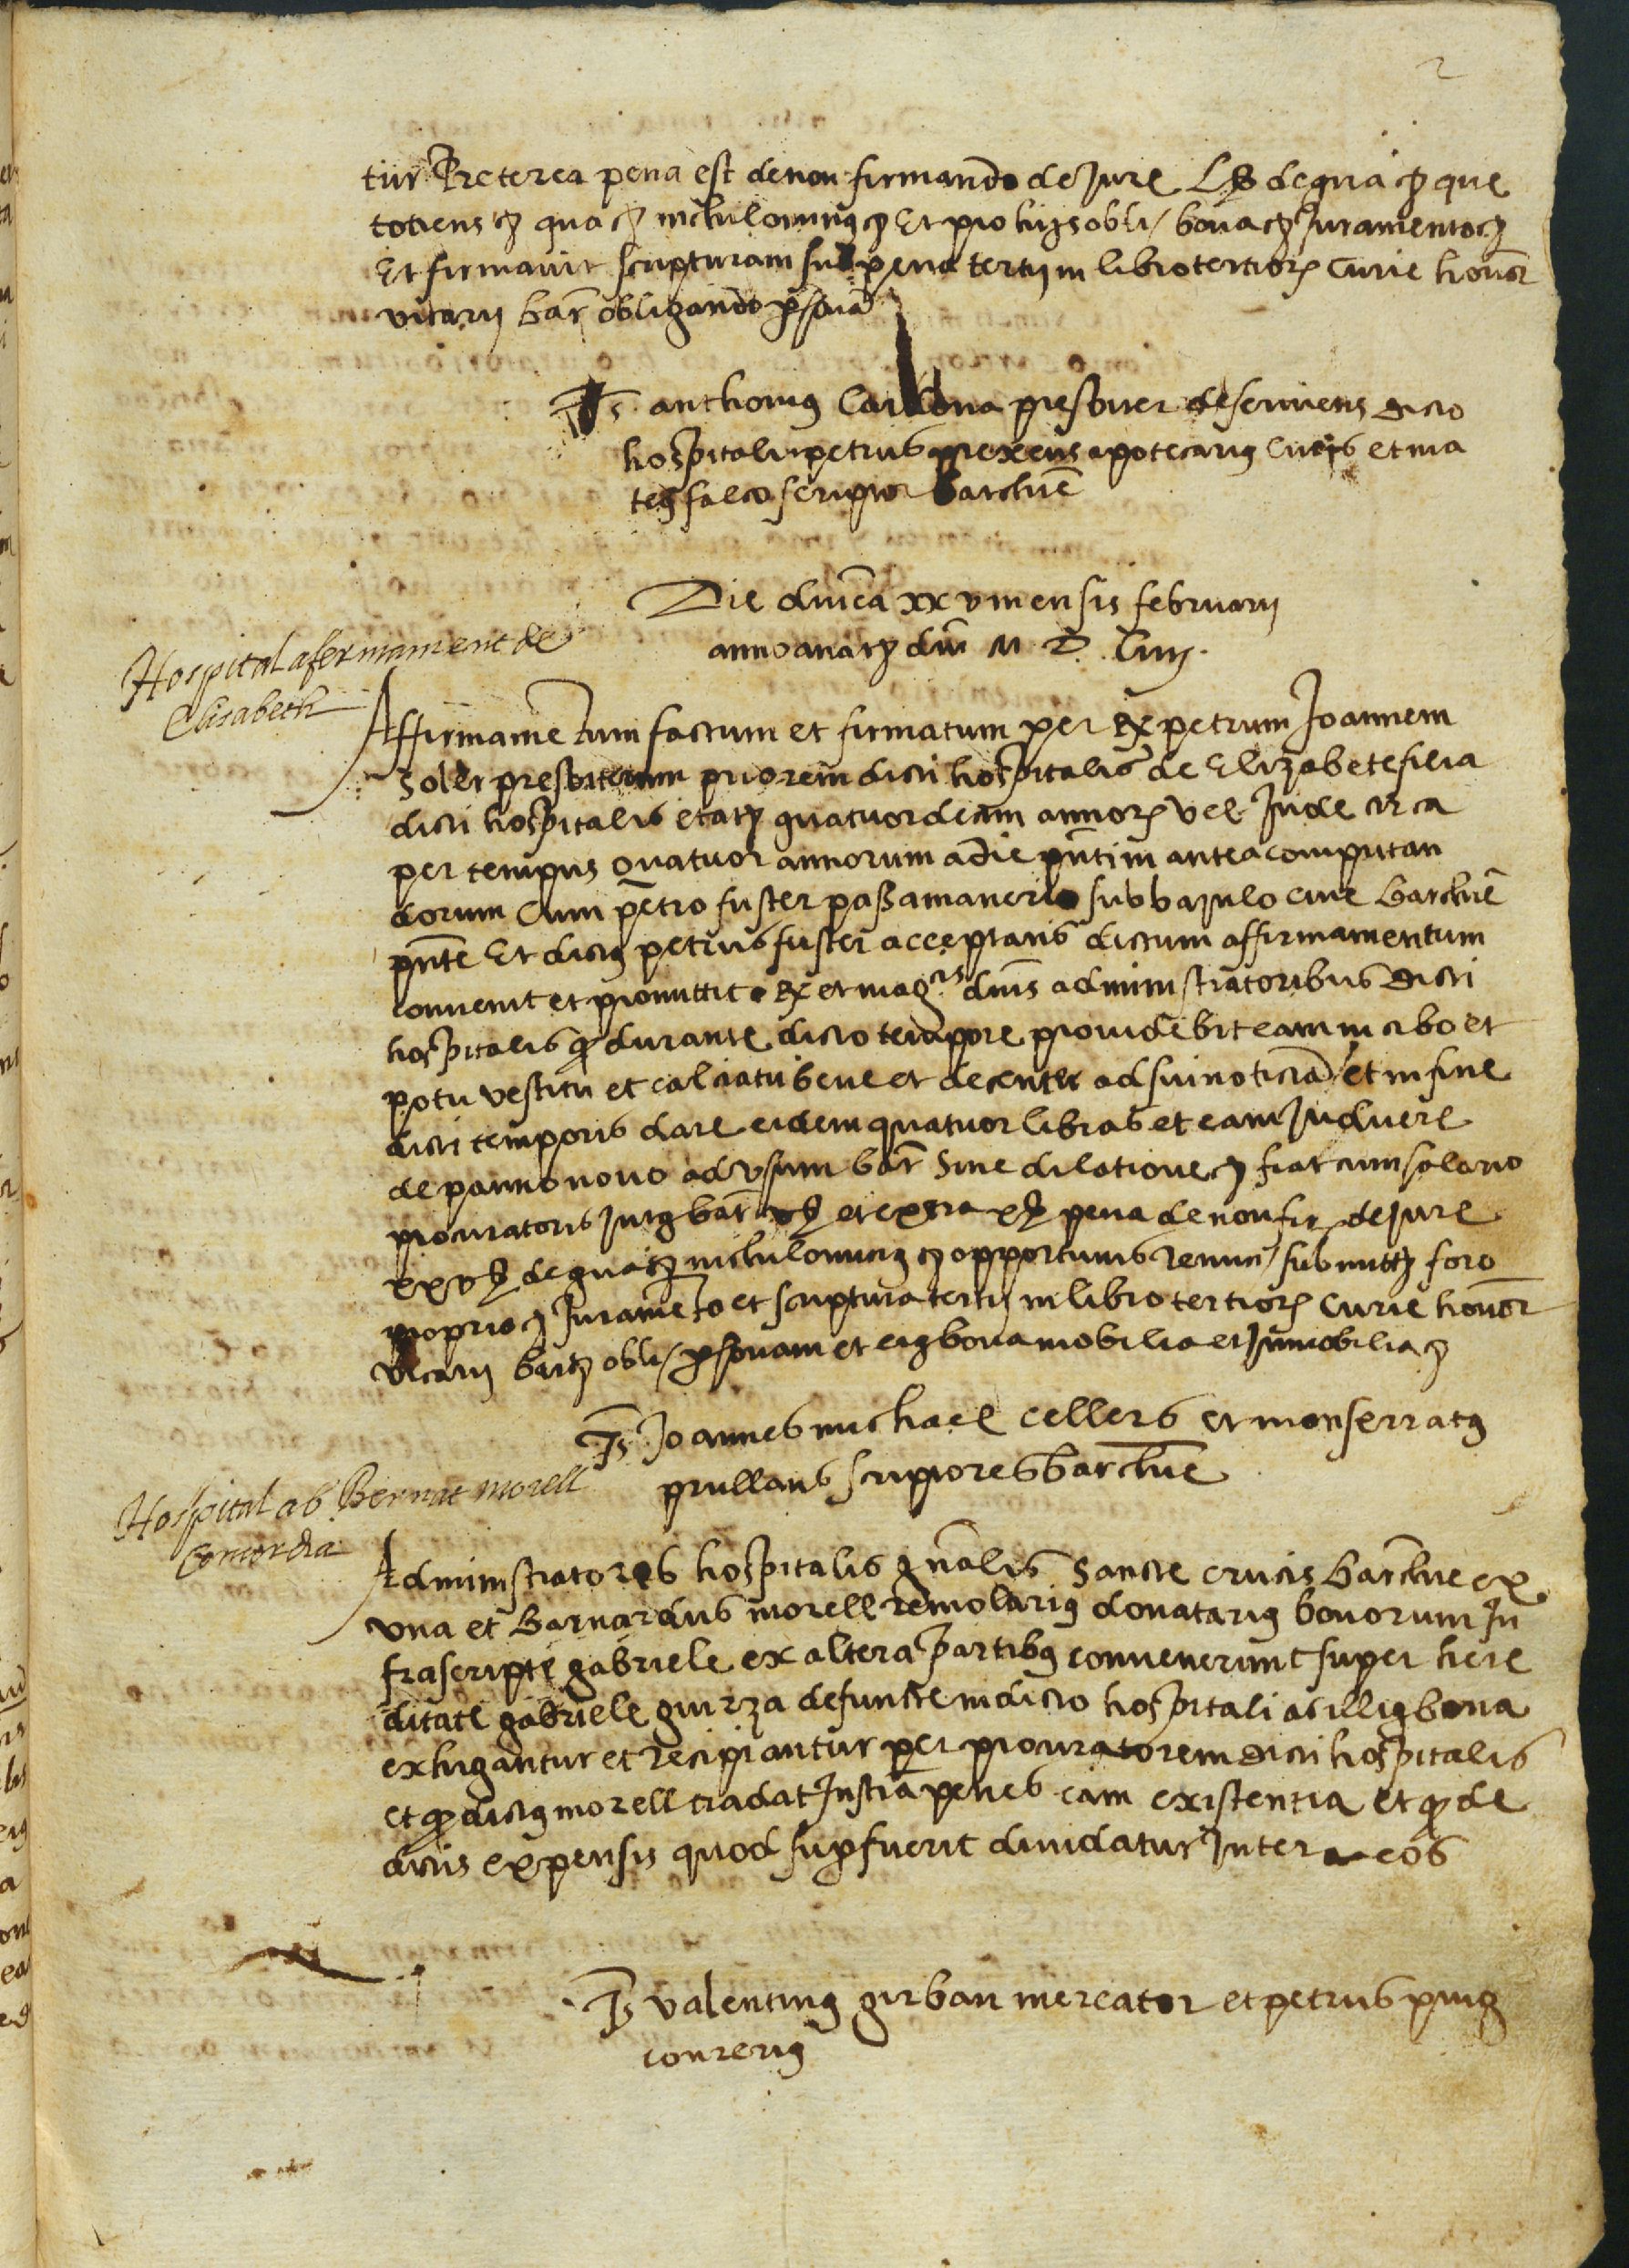 2
tur Preterea pena est de non firmando de Jure L ss de qua que
totiens qua nichilominus Et pro hijs obli bona Juramento
Et firmavit scripturam sub pena tertij in libro tertior Curie honor
vicarij bar obligando psonã
Ts anthonius Cardona presbiter deserviens dicto
hospitali petrus apotecarius civis et ma
teus falco scriptor barchne
Die dnica xxv mensis februarij
anno a nat dni M D Liiij
Hospital afermament de
Elisabeth
Affirmamentum factum et firmatum per Rx petrum Joannem
Soler presbiterum priorem dicti hospitalis de Elizabete filia
dicti hospitalis etatis quatuordecim annor vel Inde circa
per tempus quatuor annorum a die pnti in antea computan
dorum Cum petro fuster passamanerio subbajulo cive barchne
pnte Et dictus petrus fuster acceptans dictum affirmamentum
convenit et promittit Rx et magcis dnis administratoribus dicti
hospitalis q durante dicto tempore providebit eam in cibo et
potu vestitu et calciatu bene et decenter ad sui noticiã et in fine
dicti temporis dare eidem quatuor libras et eam Induere
de panno novo ad usum bar Sine dilatione fiat cum salario
procuratoris Intus bar et extra pena de non fir de Jure
de qua nichilominus opportunis renun submitt foro
proprio Juramento et scriptura tertij in libro tertior Curie honor
vicarij bar obli psonam et eius bona mobilia et Inmobilia
Ts Joannes michael cellers et monserratus
prullans scriptores barchne
Hospital ab Bernat morell
Concordia
Administratores hospitalis gnalis Sancte crucis barchne ex
una et Barnardus morell remolarius donatarius bonorum In
frascripte gabriele ex altera partibus convenerunt super here
ditate gabriele guirza defuncte in dicto hospitali q illius bona
exhigantur et recipiantur per procuratorem dicti hospitalis
et q dictus morell tradat Instra penes eam existentia et q de
dictis expensis quod supfuerit dividatur Inter eos
Ts valentinus girbau mercator et petrus puig
conrerius